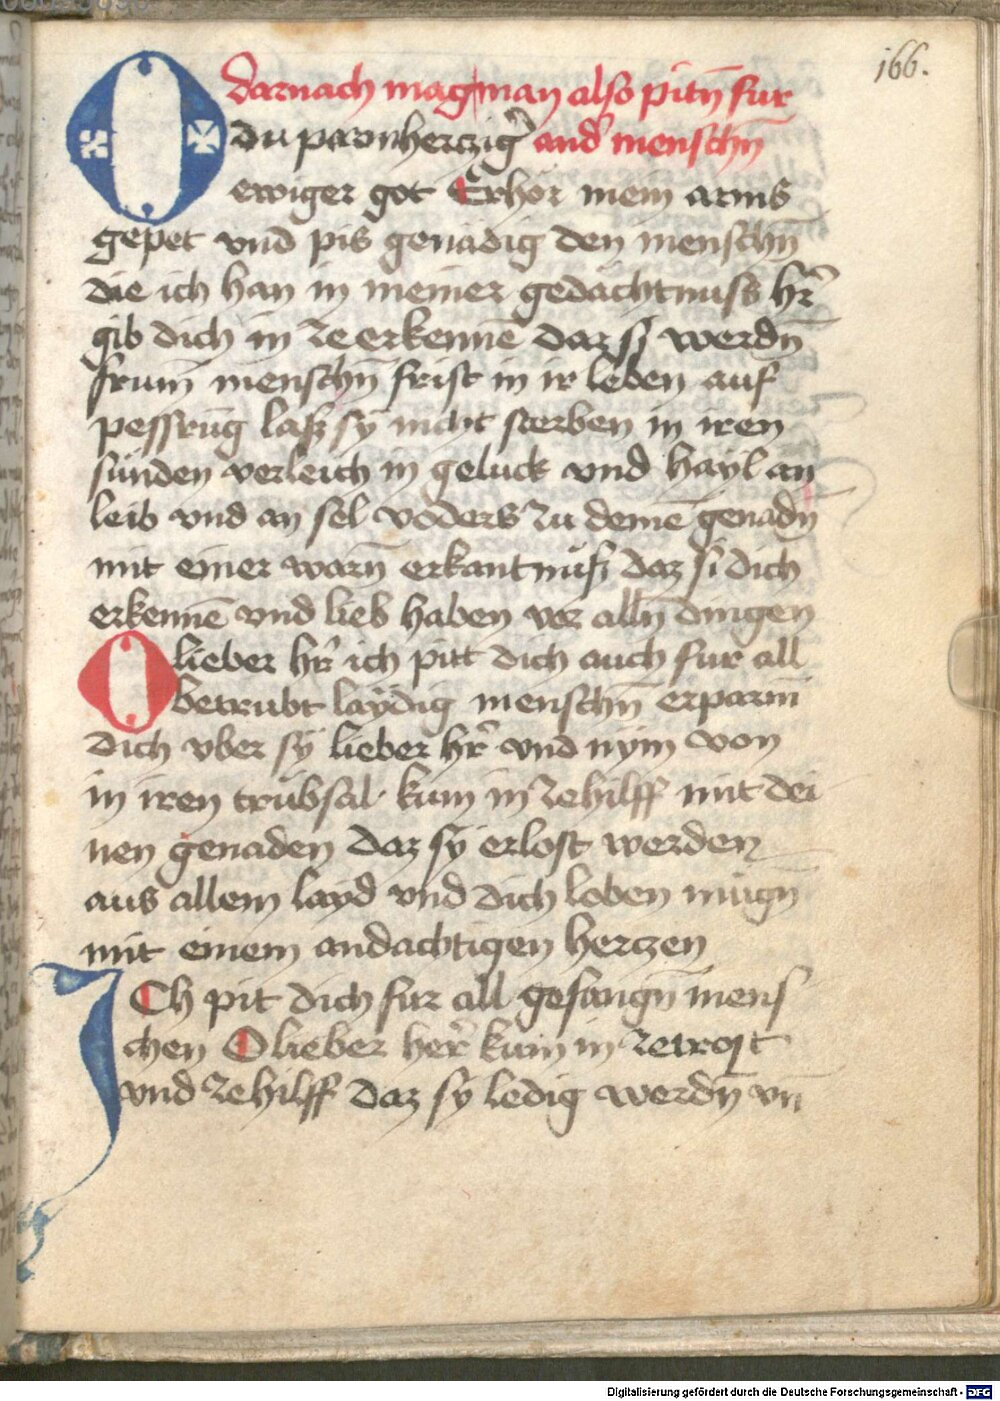 166.
darnach mag man also pitn̄ fur
O du parmhercziger̄ and̄ menschn̄
ewiger got Erhör mein arms
gepet vnd pis genädig den menschn̄
die ich han in meiner gedächtnuss hr̄
gib dich in ze erkennē daz sy werdn̄
frum̄ menschn̄ frist in ir leben auf
pessrūg laß sy nicht sterben in iren
sunden verleich in geluck vnd hayl an
leib vnd an sel voders zu deinē genadn̄
mit einer warn̄ erkantnuß daz si dich
erkennē vnd lieb haben vor alln̄ dingen
O lieber hr̄ ich pitt dich auch fur all
betrubt laydig menschn̄ erparm̄
dich vber sy lieber hr̄ vnd nym von
in iren trubsal kum in ze hilff mit dei
nen genaden daz sy erlost werden
aus allem layd vnd dich loben mugn̄
mit einem andachtigen herczen
ICh pit dich fur all gefangn̄ mens
chen O lieber her̄ kum in ze trost
vnd ze hilff daz sy ledig werdn̄ vn̄
Digitalisierung gefördert durch die Deutsche Forschungsgemeinschaft - DFG